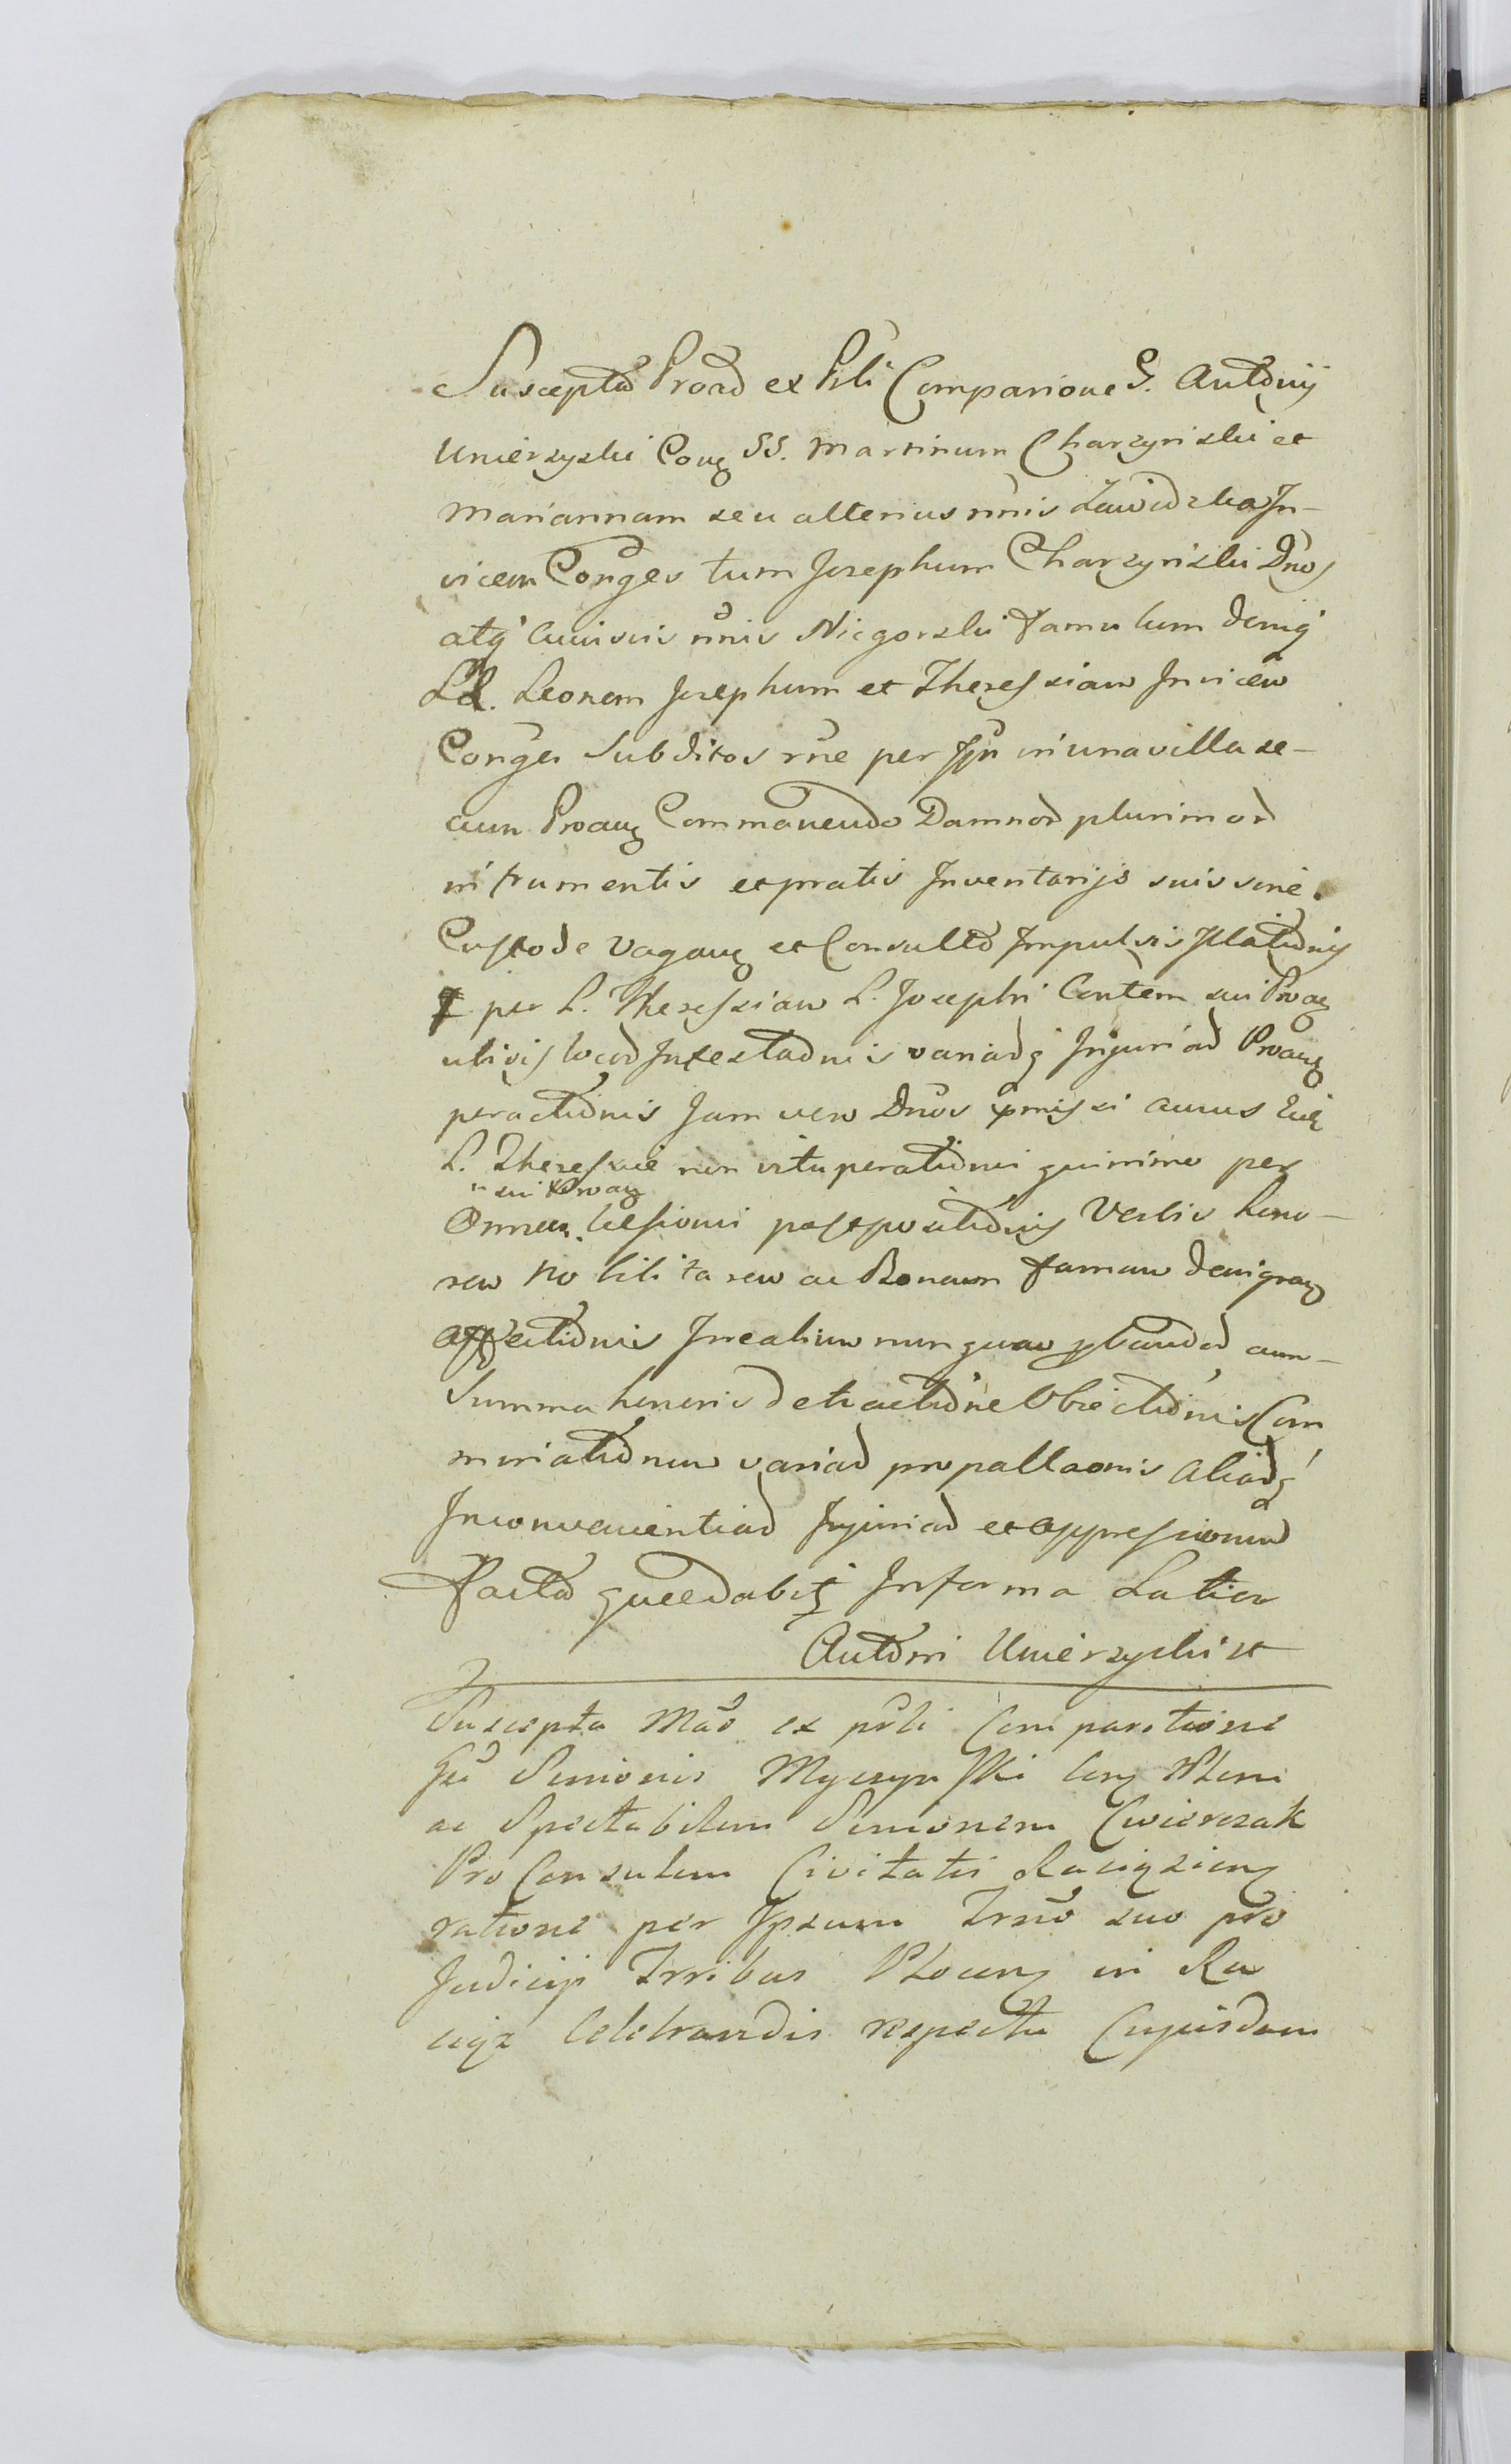 Suscepta Proad ex Prli Comparione G. Antonij
Unierzyski Cong SS. Martinum Charzynski et
Mariannam seu alterius nnis Zawidzka In-
vicem Conges tum Josephum Charzynski Dnos
atq cuiusvis nnis Niegorski famulum deniq
LL. Leonem Josephum et Theressiam Invicem
Conges Subditos rne per Ipn in una villa se-
cum Proang Commanendo Damnod plurimod
in frumentis et pratis Inventarijs suis sine
Custode Vagang et Consulto Impulsis Illationis
per L. Theressiam L. Josephi Contem sui Proag
ubivis locod Infestadnis variadq Injuriad Proang
peractionis Jam vero Dnos pmissi cuius Euq
L. Theressiae non vituperationi quinimo per
sui Proag
Omnem lessioni postpositionis Verbis hono-
rem nobilitarem ac Bonam famam denigrang
affectionis Irrealium nunquam pbandod cum
Summa honoris detractione Obiectionis Com
minationum variad propallaonis aliadq
Inconvenientiad Injuriad et oppressionum
Factad quedabit Informa Latior
Antoni Unierzyski st
Suscepta Mao ex prli Comparitione
Gu Simonis Myszynski Cong Nlem
ac Spectabilem Simonem Cwierczak
Pro Consulem Civitatis Raciązieng
ratione per Ipsum Trno suo pro
Judicijs Trribus Plocens in Ra
ciąz Celebrandis respectu Cujusdam